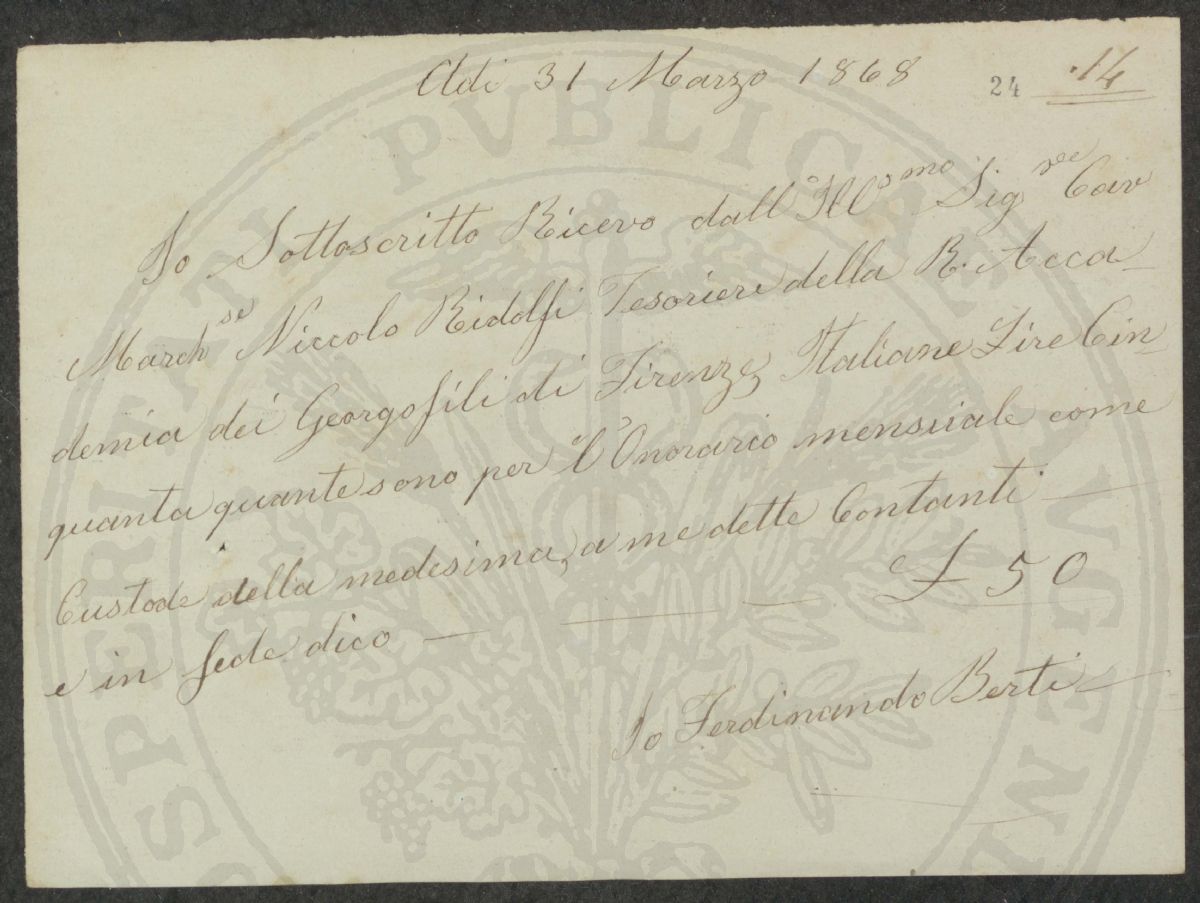 Adi 31 Marzo 1868 24 .14
Io Sottoscritto Ricevo dall'Ill.mo Sig.re Cav
March.se Niccolo Ridolfi Tesoriere della R. Acca-
demia dei Georgofili di Firenze, Italiane Lire Cin-
quanta quante sono per l'Onorario mensuale come
Custode della medesima, a me dette Contanti
e in fede dico — £ 50
Io Ferdinando Berti
PROSPERITATI PVBLICAE AVGENDAE